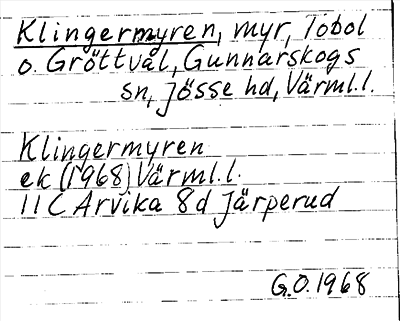 Klingermyren, myr, Tobol
o. Gröttvål, Gunnarskogs
sn, Jösse hd, Värml.l.
Klingermyren
ek (1968) Värml.l.
11C Arvika 8d Järperud
G.O. 1968